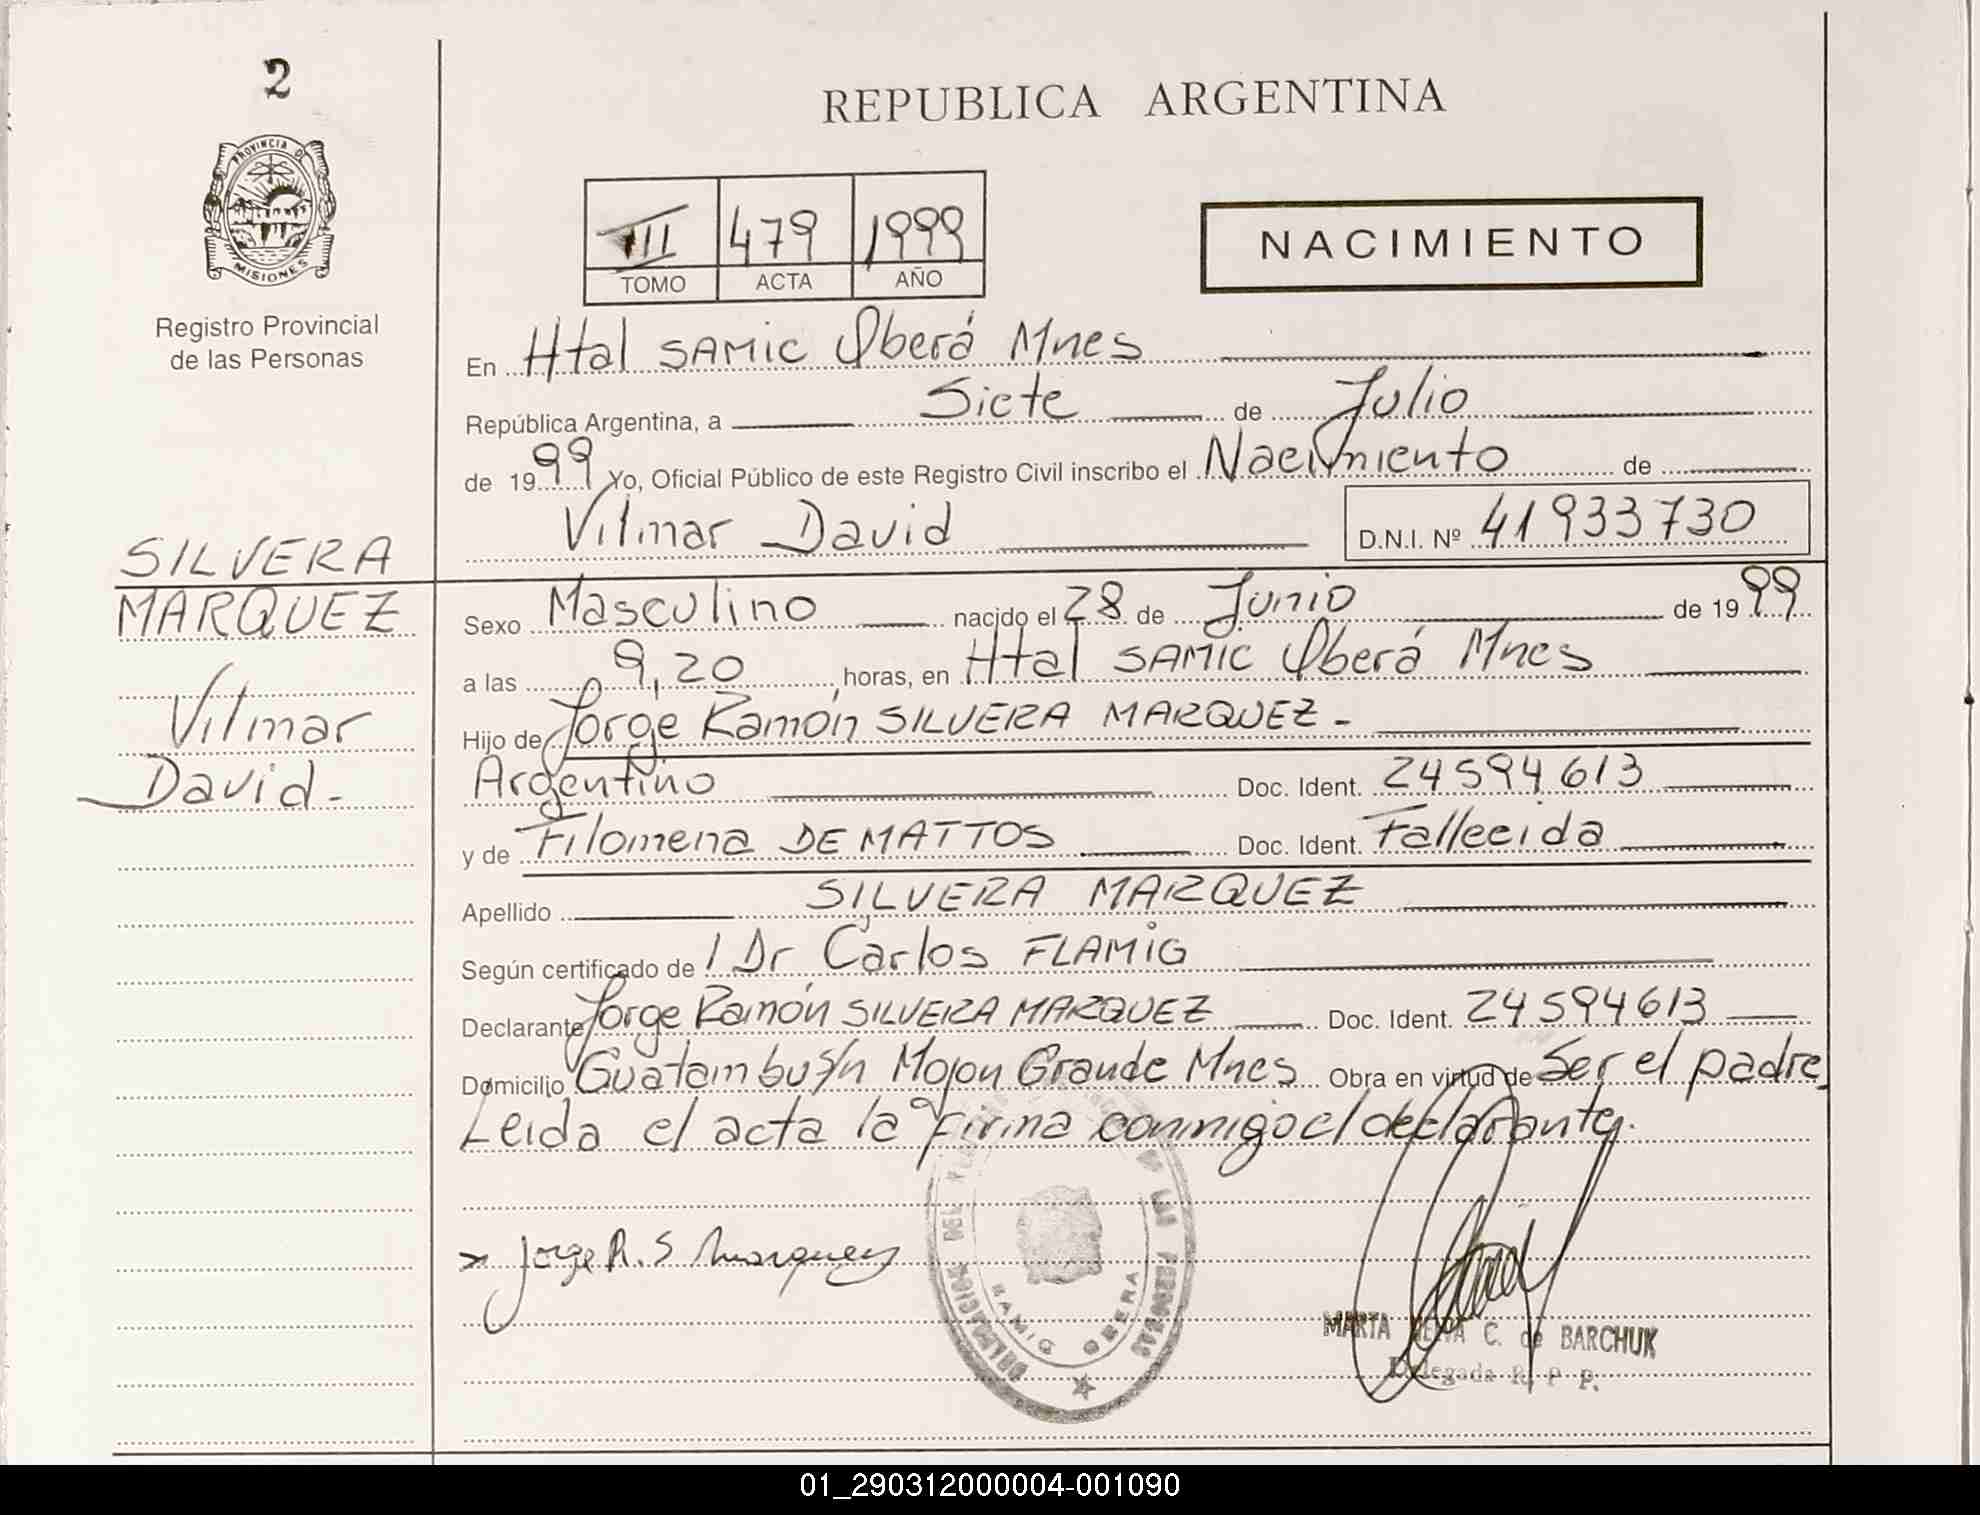 2
REPUBLICA ARGENTINA
PROVINCIA DE
MISIONES
Registro Provincial
de las Personas
III 479 1999
TOMO ACTA AÑO
NACIMIENTO
En Htal SAMIC Oberá Mnes
República Argentina, a Siete de Julio
de 1999 Yo, Oficial Público de este Registro Civil inscribo el Nacimiento de
Vilmar David D.N.I. Nº 41933730
SILVERA
MARQUEZ
Vilmar
David-
Sexo Masculino nacido el 28 de Junio de 1999
a las 9,20 horas, en Htal SAMIC Oberá Mnes
Hijo de Jorge Ramón SILVERA MARQUEZ-
Argentino Doc. Ident. 24594613
y de Filomena DE MATTOS Doc. Ident. Fallecida
Apellido SILVERA MARQUEZ
Según certificado de l Dr Carlos FLAMIG
Declarante Jorge Ramón SILVERA MARQUEZ Doc. Ident. 24594613
Domicilio Guatambu s/n Mojon Grande Mnes Obra en virtud de Ser el padre.
Leida el acta la firma conmigo el declarante.
x Jorge R. S Marquez
DELEGACION DEL LAS PERSONAS
SAMIC OBERA
MARTA C. de BARCHUK
Delegada R. P. P.
01_290312000004-001090